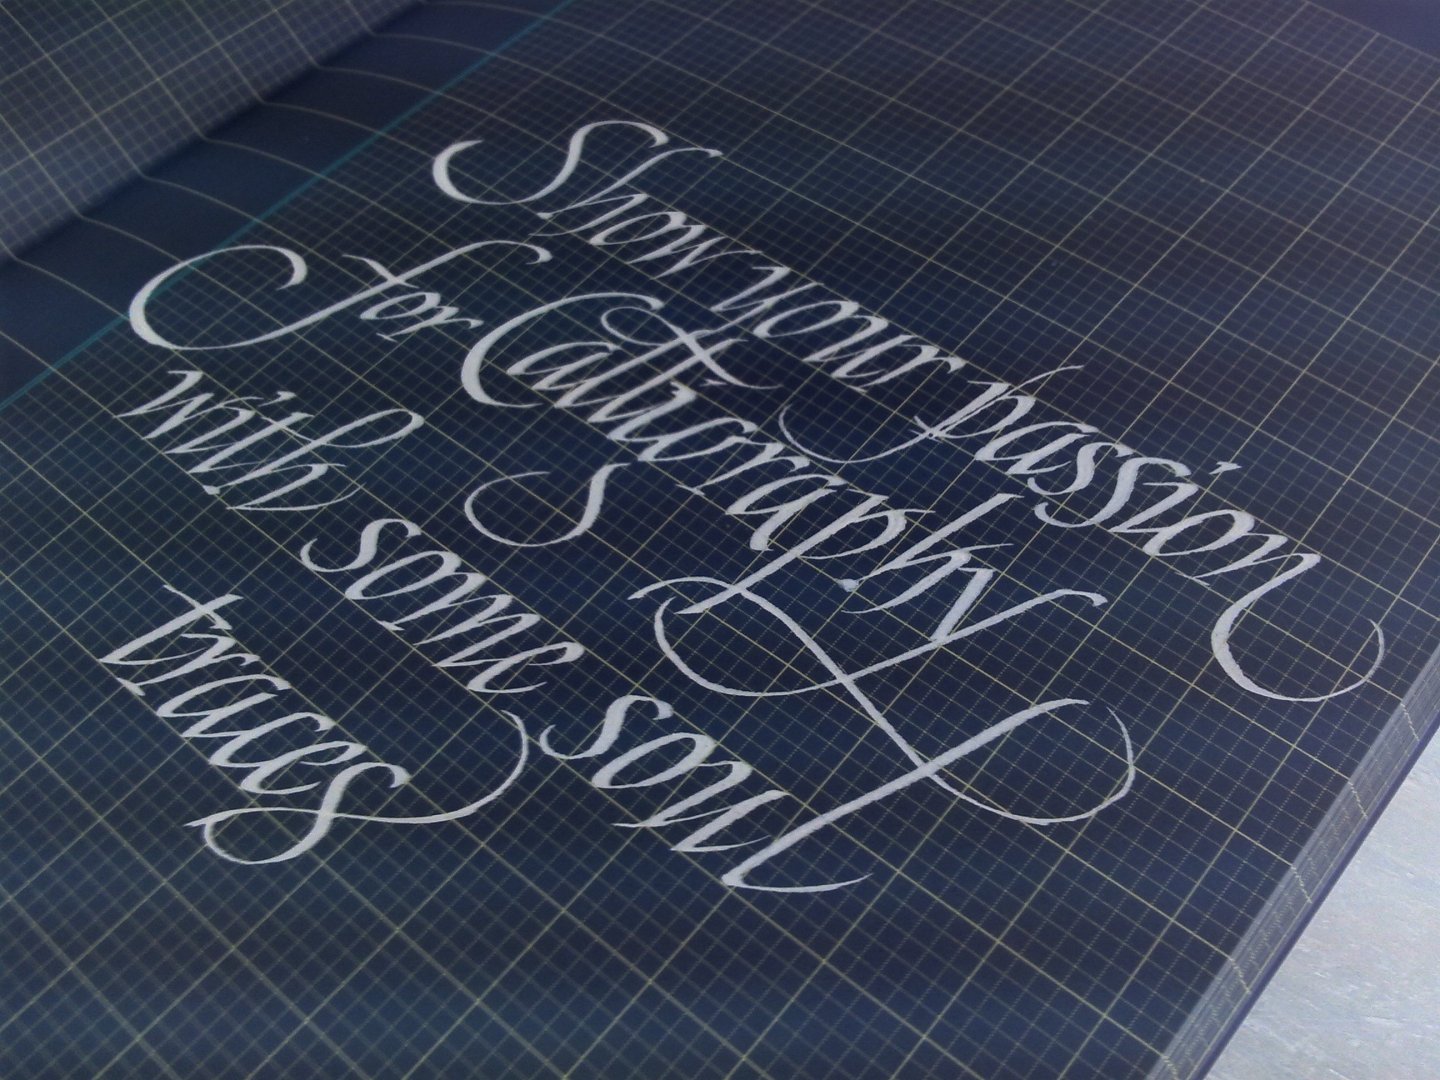 Show your passion
for Calligraphy
with some soul
traces